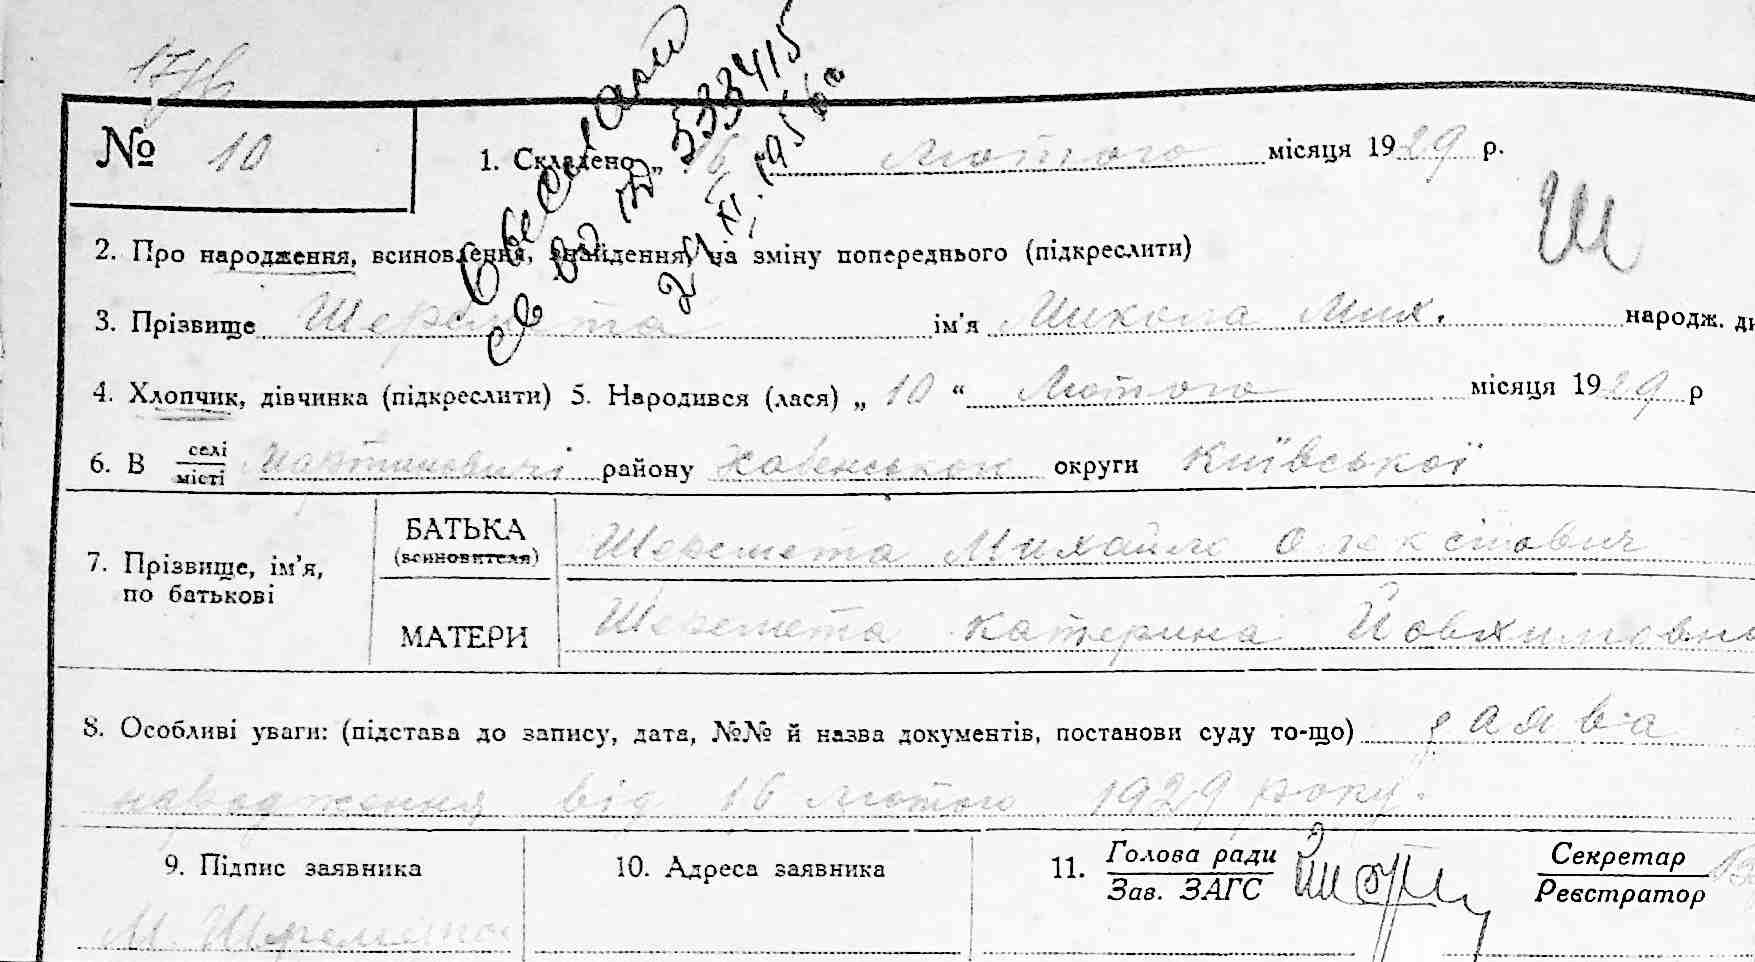 № 10
1. Складено „ 16 Лютого місяця 1929 р.
св во 533415
2. Про народження, всиновлення, знайдення, на зміну попереднього (підкреслити)
Ш
3. Прізвище Шеремета ім'я Микола Мих. народж.
4. Хлопчик, дівчинка (підкреслити) 5. Народився (лася) „ 10 “ Лютого місяця 1929 р
6. В селі/місті Мартиновичі району Хабенського округи Київської
7. Прізвище, ім'я, по батькові
БАТЬКА (всиновителя) Шеремета Михайло
МАТЕРИ Шеремета Катерина
8. Особливі уваги: (підстава до запису, дата, №№ й назва документів, постанови суду то-що) заява
народження від 16 лютого 1929 року.
9. Підпис заявника
10. Адреса заявника
11. Голова ради
Зав. ЗАГС
Секретар
Реєстратор
М. Шеремета